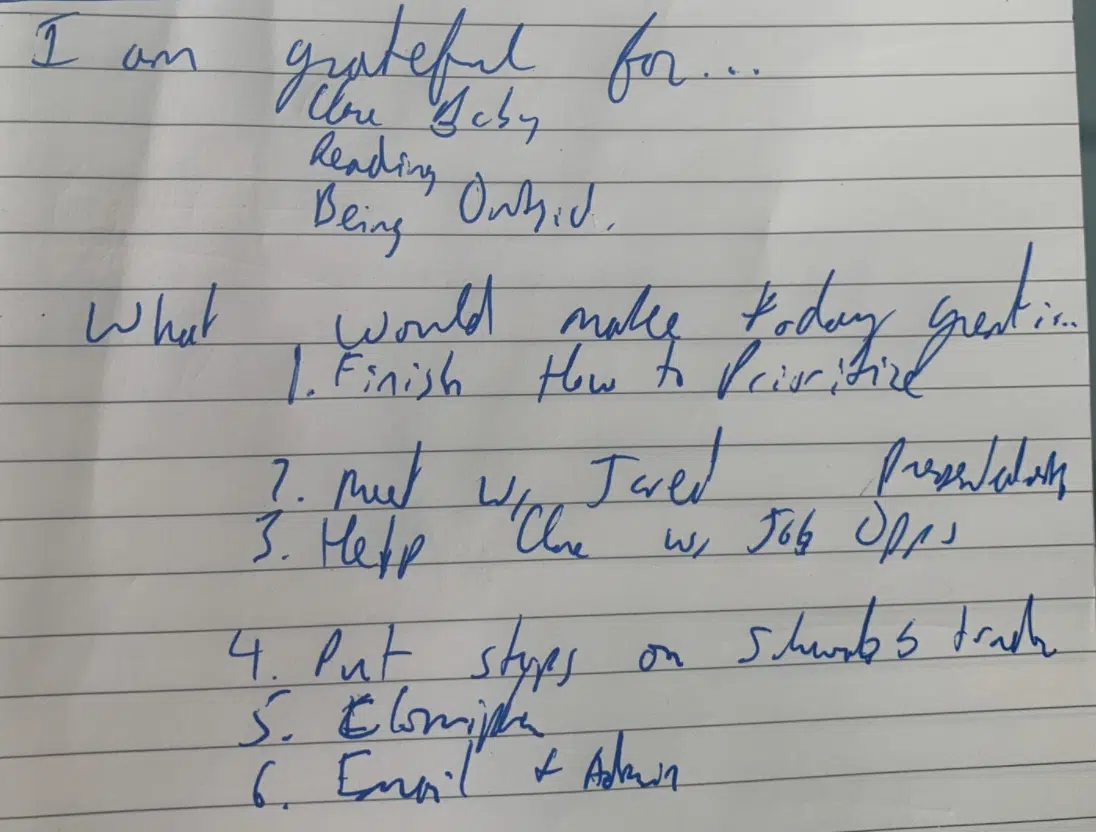 I am grateful for...
Clare Baby
Reading
Being Outsid.
What would make today great is...
1. Finish How to Prioritize
2. Meet w/ Jared Presentation
3. Help Clare w/ Job Opps
4. Put stops on
5.
6. Email + Admin